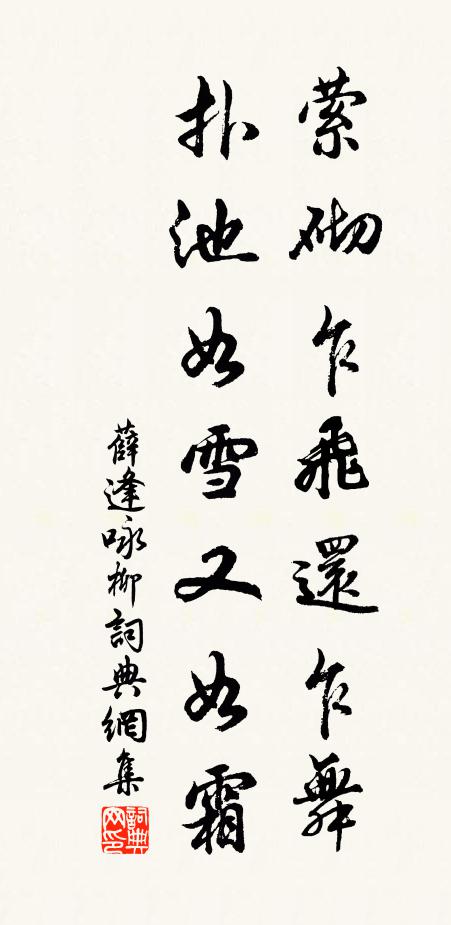 萦砌乍飛還乍舞
扑池如雪又如霜
薛逢咏柳詞典網集
詞典網印